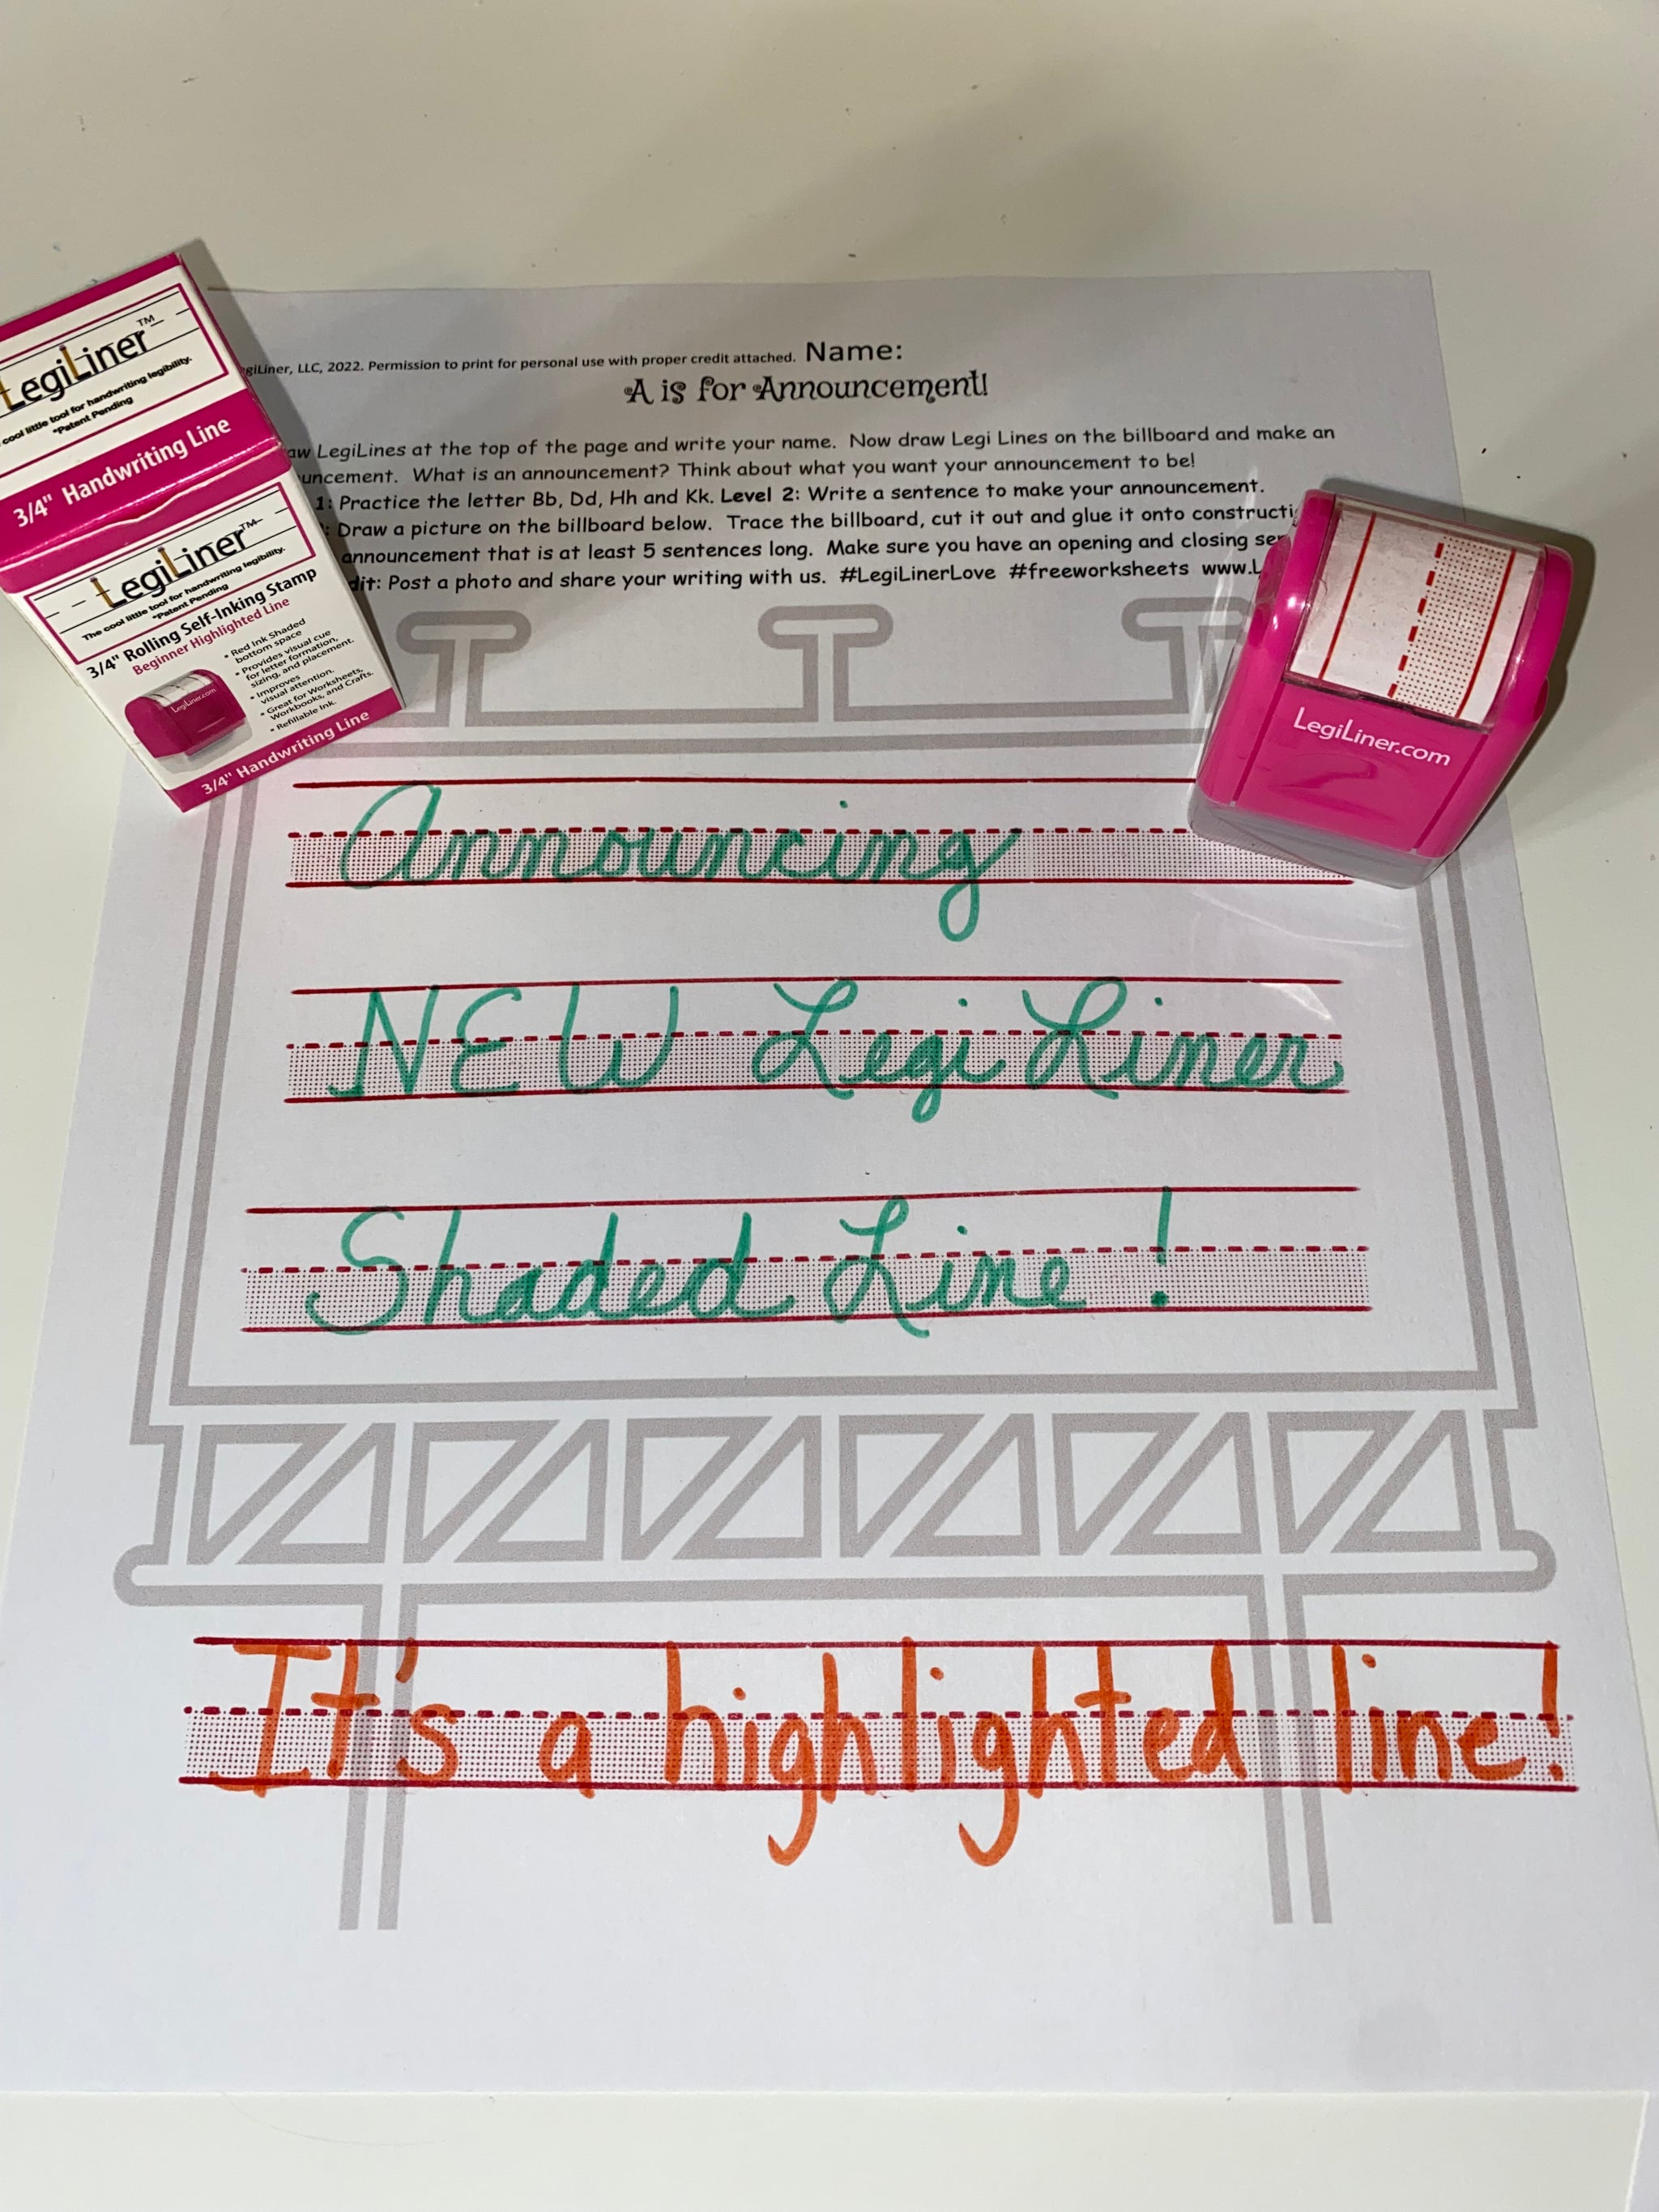 LegiLiner™
cool little tool for handwriting legibility.
*Patent Pending
3/4" Handwriting Line
LegiLiner™
The cool little tool for handwriting legibility.
*Patent Pending
3/4" Rolling Self-Inking Stamp
Beginner Highlighted Line
• Red Ink Shaded
bottom space
• Provides visual cue
for letter formation,
sizing, and placement.
• Improves
visual attention.
• Great for Worksheets,
Workbooks, and Crafts.
• Refillable Ink.
LegiLiner.com
3/4" Handwriting Line
LLC, 2022. Permission to print for personal use with proper credit attached. Name:
A is for Announcement!
LegiLines at the top of the page and write your name. Now draw Legi Lines on the billboard and make an
What is an announcement? Think about what you want your announcement to be!
1: Practice the letter Bb, Dd, Hh and Kk. Level 2: Write a sentence to make your announcement.
: Draw a picture on the billboard below. Trace the billboard, cut it out and glue it onto
announcement that is at least 5 sentences long. Make sure you have an opening and closing
Post a photo and share your writing with us. #LegiLinerLove #freeworksheets
LegiLiner.com
Announcing
NEW LegiLiner
Shaded Line!
It's a highlighted line!